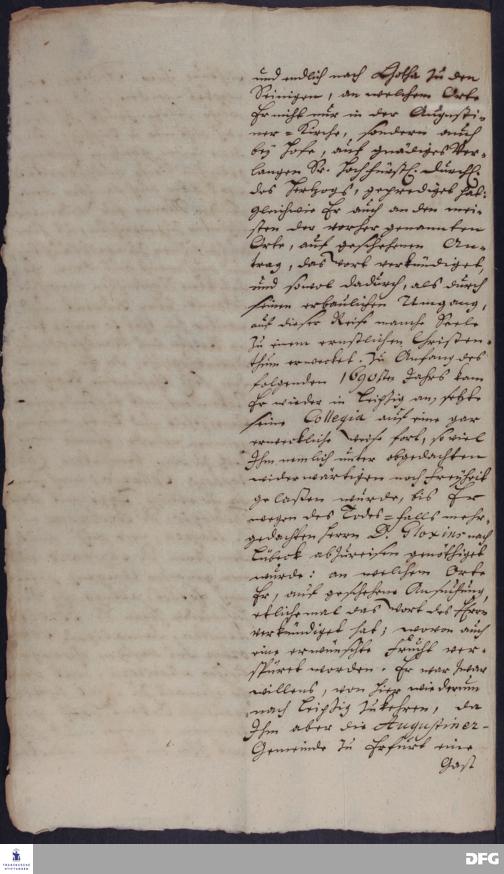 und endlich nach Gotha zu den
Seinigen, an welchem Orte
Er nicht nur in der Augusti-
ner-Kirche, sondern auch
bey Hofe, auf gnädiges Ver-
langen Sr. Hochfürstl. Durchl.
des Hertzogs, geprediget hat:
gleichwie Er auch an den mei-
sten der vorher genannten
Orte, auf geschehenen An-
trag, das Wort verkündiget,
und sowol dadurch, als durch
seinen erbaulichen Umgang,
auf dieser Reise manche Seele
zu einem ernstlichen Christen-
thum erwecket. Zu Anfang des
folgenden 1690sten Jahrs kam
Er wieder in Leipzig an, setzte
seine Collegia auf eine gar
erweckliche Weise fort, so viel
Ihm nemlich unter obgedachten
widerwärtigen noch Freyheit
gelassen wurde, bis Er
wegen des Todes-falls mehr-
gedachten Herrn D. Gloxins nach
Lübeck abzureisen genöthiget
wurde: an welchem Orte
Er, auf geschehene Ansuchung,
etlichemal das Wort des Herrn
verkündiget hat; wovon auch
eine erwünschte Frucht ver-
spüret worden. Er war zwar
willens, von hier wiederum
nach Leipzig zukehren, da
Ihm aber die Augustiner-
Gemeinde zu Erfurt eine
Gast
FRANCKESCHE
STIFTUNGEN
DFG